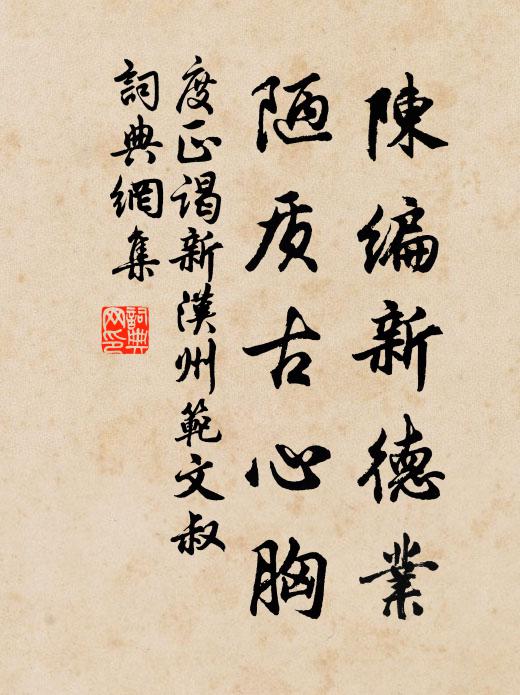 陳編新德業
陋质古心胸
度正謁新漢州範文叔
詞典網集
詞典網印